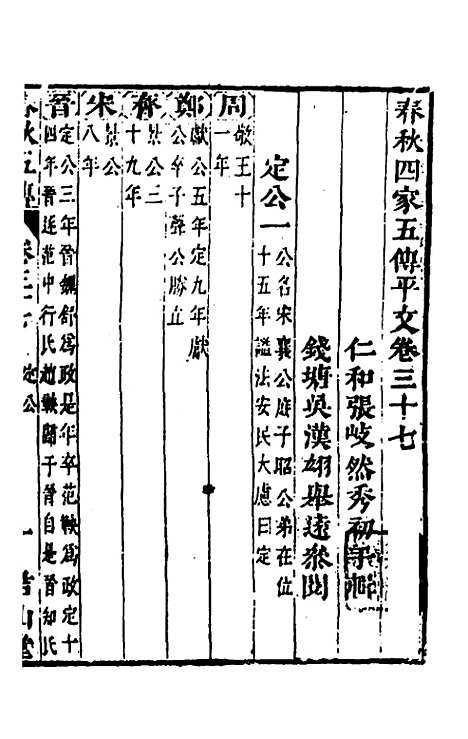 春秋四家五傳平文卷三十七
仁和張岐然秀初
錢塘吳漢翊舉遠參閱
定公一 公名宋襄公庶子昭公弟在位
十五年謚法安民大慮曰定
周 敬王十
一年
鄭 獻公五年定九年獻
公卒子聲公勝立
齊 景公三
十九年
宋 景公
八年
晉 定公三年晉魏舒爲政是年卒范鞅爲政定十
四年晉逐范中行氏趙鞅歸于晉自是晉知氏
春秋五傳 卷三十七 定公 一